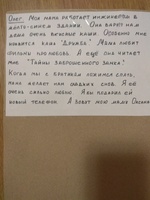 Олег. Моя мама работает инженером в
желто-синем здании. Она варит нам
дома очень вкусные каши. Особенно мне
нравится каша "Дружба". Мама любит
фильмы про любовь. А ещё она читает
мне "Тайны заброшенного замка".
Когда мы с братьями ложимся спать,
мама желает нам сладких снов. Я её
очень сильно люблю. Я бы подарил ей
новый телефон. А зовут мою маму Оксана